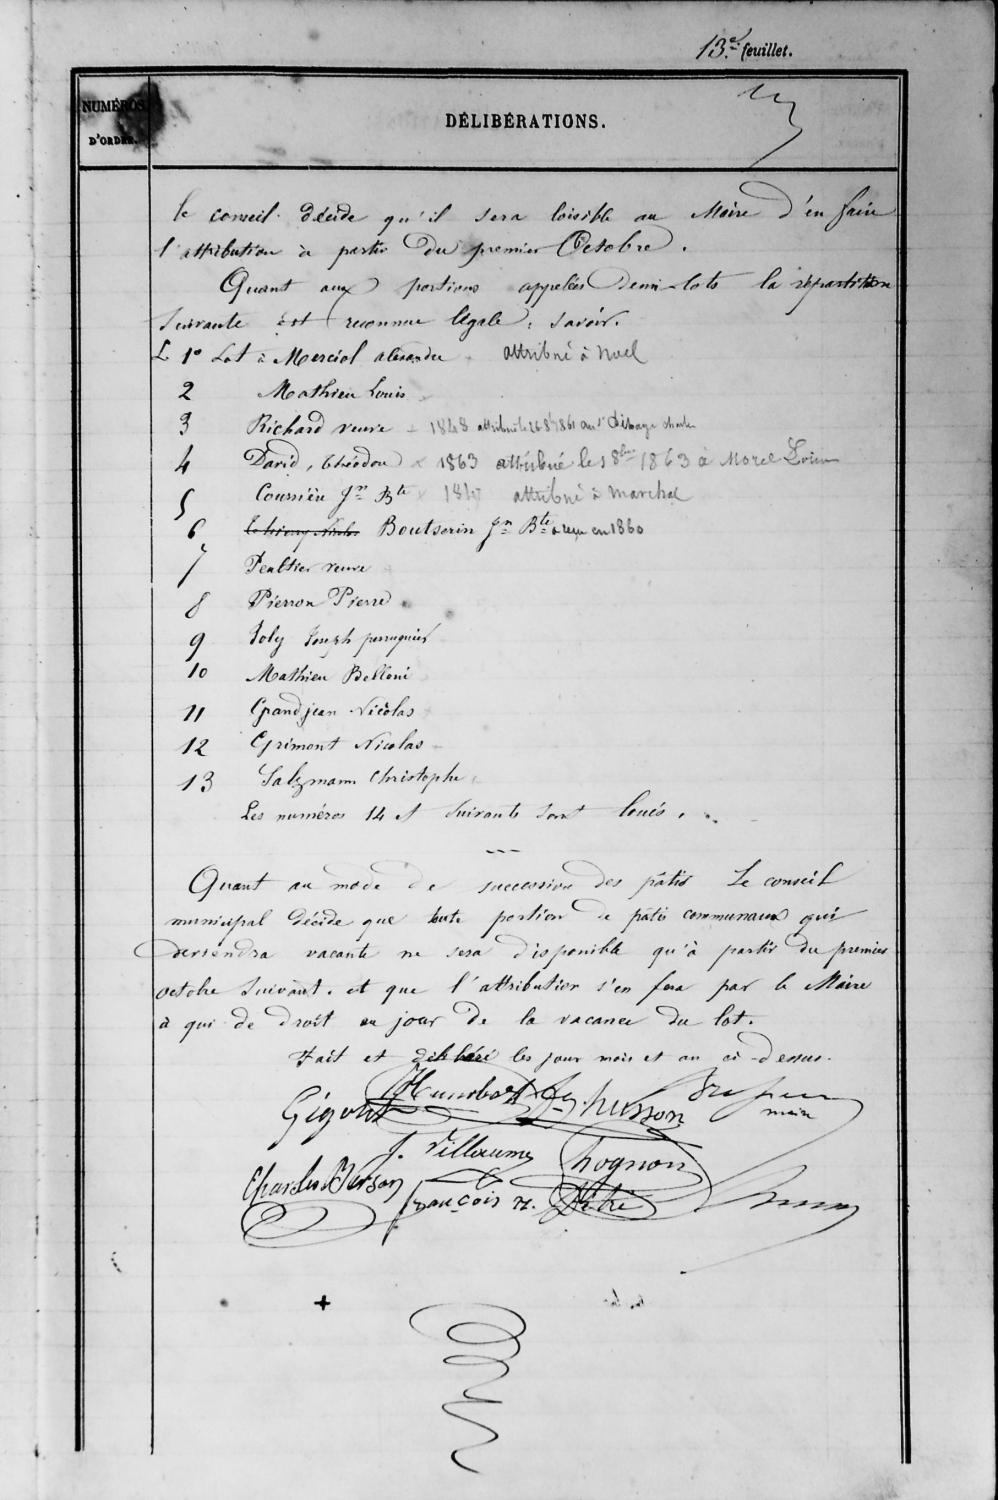 13e feuillet.
NUMÉROS
D'ORDRE.
DÉLIBÉRATIONS.
le conseil décide qu'il sera loisible au Maire d'en faire
l'attribution à partir du premier Octobre.
Quant aux portions appelées demi-lots la répartition
suivante est reconnue légale, savoir.
L 1o Lot à Merciol alexandre attribué à Noel
2 Mathieu Louis
3 Richard veuve 1848 attribué le 26 8bre 1861 au Sr
4 David, théodore 1863 attribué le 1 8bre 1863 à Morel
5 Coussière Jn Bte attribué à Marchal
6 Boutserin Jn Bte en 1860
7 Peultier veuve
8 Pierron Pierre
9 Joly Joseph perruquier
10 Mathieu Belloni
11 Grandjean Nicolas
12 Grimont Nicolas
13 Salzmann Christophe
Les numéros 14 et suivants sont loués.
Quant au mode de succession des pâtis Le conseil
municipal décide que toute portion de pâtis communaux qui
deviendra vacante ne sera disponible qu'à partir du premier
octobre suivant. et que l'attribution s'en fera par le Maire
à qui de droit au jour de la vacance du lot.
Fait et délibéré les jour mois et an ci-dessus.
Humbert Jh. husson
Gigout maire
J. Villaume hognon
Charles Husson françois n.